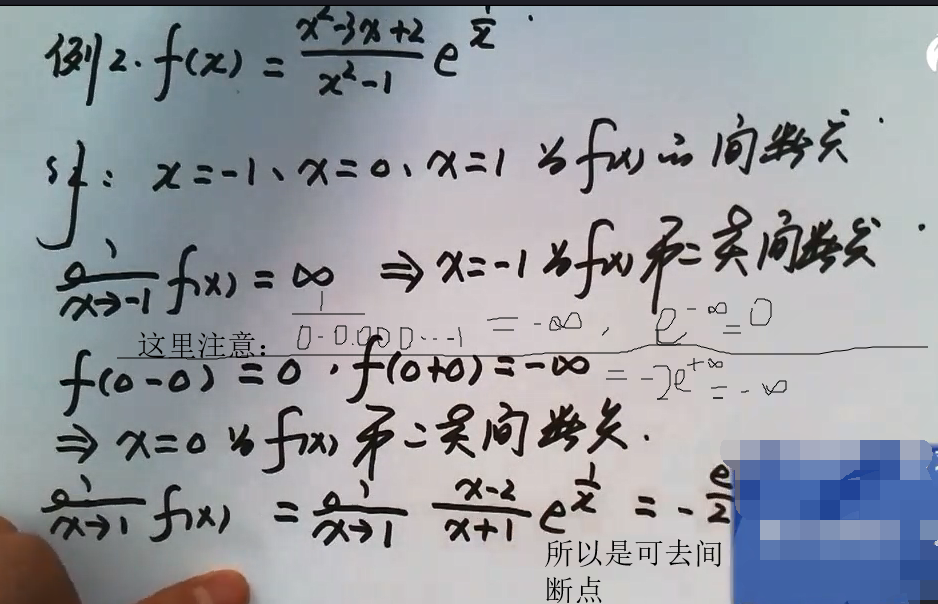 例2. f(x) = \frac{x²-3x+2}{x²-1} e^{\frac{1}{x}}.
解: x=-1、x=0、x=1 为f(x)的间断点.
\lim_{x→-1} f(x) = ∞ ⇒ x=-1 为f(x)第二类间断点.
这里注意: \frac{1}{0-0.000…1} = -∞, e^{-∞}=0
f(0-0) = 0, f(0+0) = -∞ = -2e^{+∞} = -∞
⇒ x=0 为f(x)第二类间断点.
\lim_{x→1} f(x) = \lim_{x→1} \frac{x-2}{x+1} e^{\frac{1}{x}} = -\frac{e}{2}
所以是可去间
断点